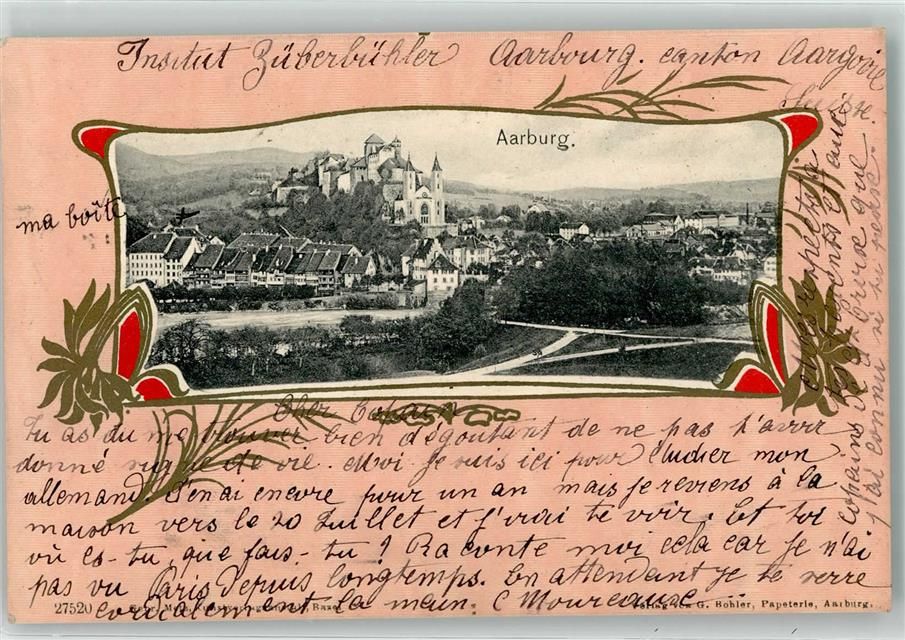 Institut Züberbühler Aarbourg. canton Aargovie
Suisse.
Aarburg.
ma boîte
Cher Copain
Tu as du me trouver bien dégoutant de ne pas t'avoir
donné signe de vie. Moi je suis ici pour étudier mon
allemand. J'en ai encore pour un an mais je reviens à la
maison vers le 20 Juillet et j'irai te voir. Et toi
où es-tu, que fais-tu? Raconte moi cela car je n'ai
pas vu Paris depuis longtemps. En attendant je te serre
cordialement la main. C Moureaux
mes respects
copains
j'ai connu si tu
27520
Basel
Verlag von G. Bohler, Papeterie, Aarburg.